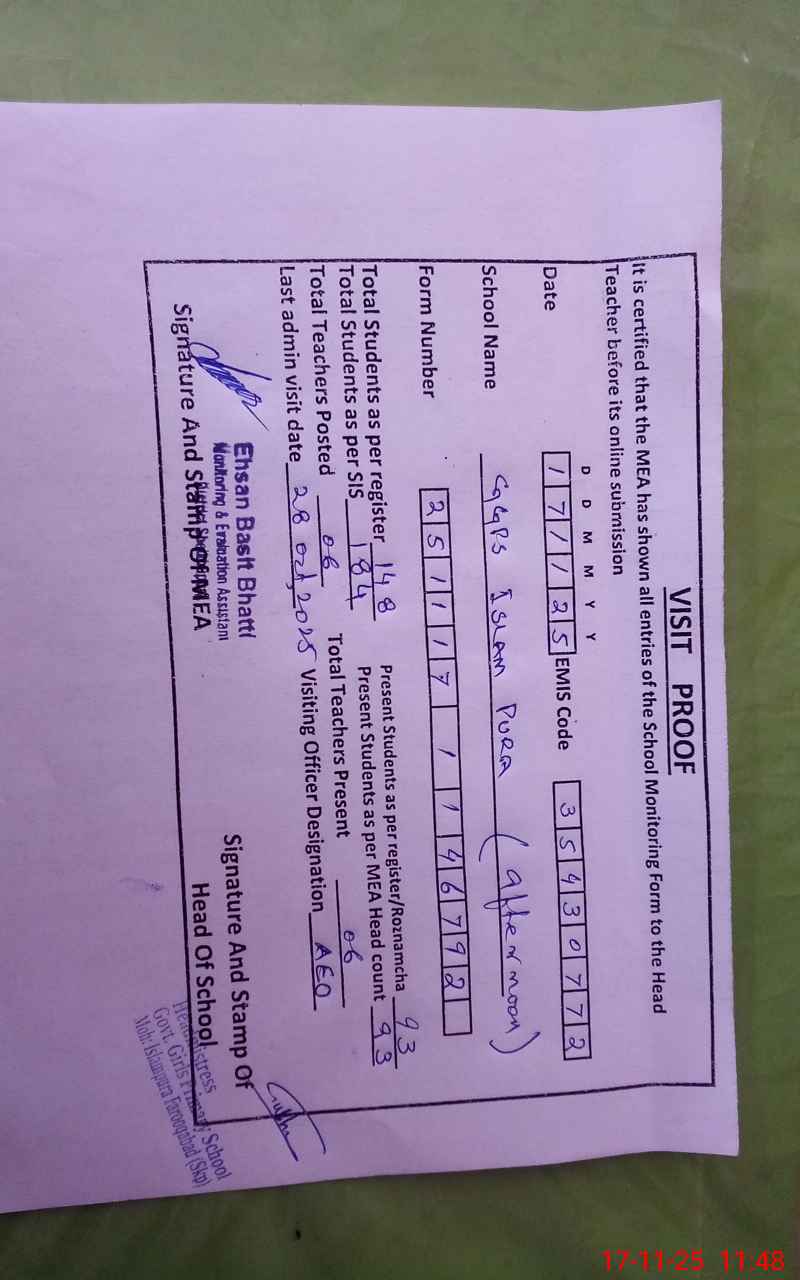 VISIT PROOF
It is certified that the MEA has shown all entries of the School Monitoring Form to the Head
Teacher before its online submission
D D M M Y Y
Date 1 7 1 1 2 5 EMIS Code 3 5 4 3 0 7 7 2
School Name GGPS ISLAM PURA (afternoon)
Form Number 2 5 1 1 1 7 1 1 4 6 7 9 2
Total Students as per register 148 Present Students as per register/Roznamcha 93
Total Students as per SIS 184 Present Students as per MEA Head count 93
Total Teachers Posted 06 Total Teachers Present 06
Last admin visit date 28 Oct, 2025 Visiting Officer Designation AEO
Ehsan Basit Bhatti
Monitoring & Evaluation Assistant
Signature And Stamp Of MEA
Signature And Stamp Of
Head Of School
Headmistress
Govt. Girls Primary School
Moh: Islampura Farooqabad (Skp)
17-11-25 11:48